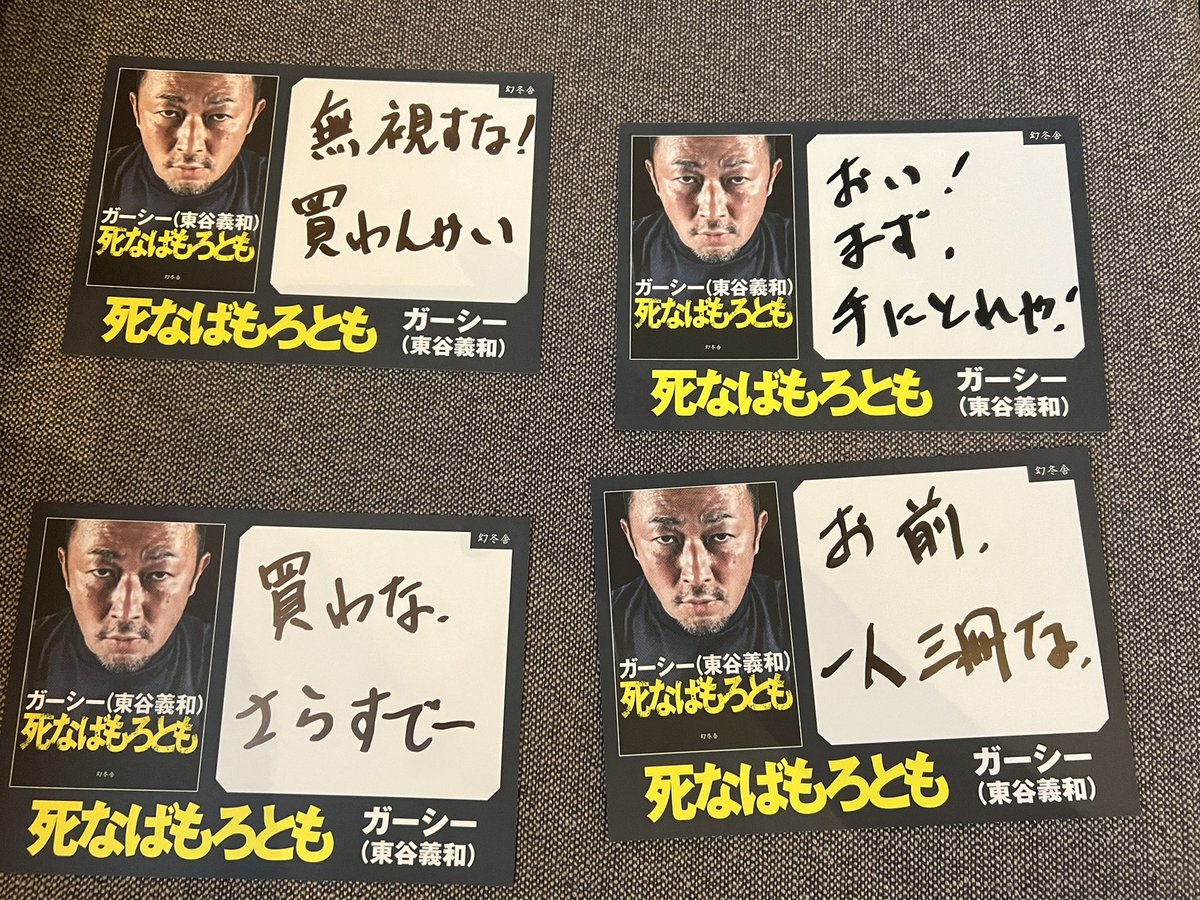 幻冬舎
無視すな!
買わんけい
ガーシー(東谷義和)
死なばもろとも
幻冬舎
死なばもろとも
ガーシー
(東谷義和)
幻冬舎
おい!
まず、
手にとれや!
ガーシー(東谷義和)
死なばもろとも
幻冬舎
死なばもろとも
ガーシー
(東谷義和)
幻冬舎
買わな、
さらすでー
ガーシー(東谷義和)
死なばもろとも
幻冬舎
死なばもろとも
ガーシー
(東谷義和)
幻冬舎
お前、
一人三冊な、
ガーシー(東谷義和)
死なばもろとも
幻冬舎
死なばもろとも
ガーシー
(東谷義和)